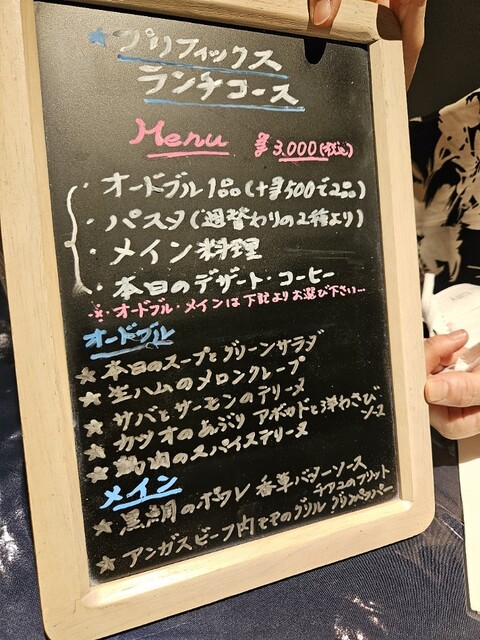 ★プリフィックス
ランチコース
Menu ¥3,000(税込)
・オードブル1品(+¥500で2品)
・パスタ(週替わりの2種より)
・メイン料理
・本日のデザート・コーヒー
※・オードブル・メインは下記よりお選び下さい…
オードブル
★本日のスープとグリーンサラダ
★生ハムのメロンクレープ
★サバとサーモンのテリーヌ
★カツオのあぶり アボカドと洋わさび
ソース
★肉のスパイステリーヌ
メイン
★黒鯛のポワレ 香草バターソース
のフリット
★アンガスビーフ内モモのグリル グリーンペッパー